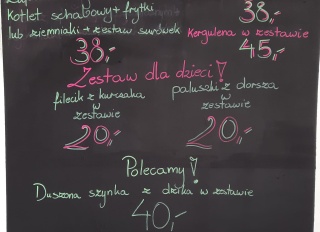 kotlet schabowy + frytki
lub ziemniaki + zestaw surówek
38,-
38,-
Kergulena w zestawie
45,-
Zestaw dla dzieci!
filecik z kurczaka
w
zestawie
20,-
paluszki z dorsza
w
zestawie
20,-
Polecamy!
Duszona szynka z dzika w zestawie
40,-